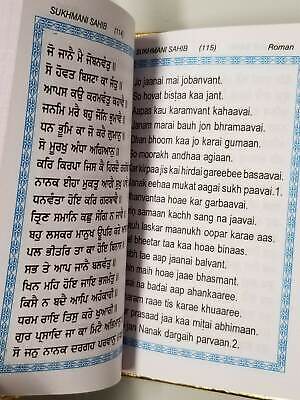 SUKHMANI SAHIB (114)
ਸੋ ਜਾਨੈ ਮੈ ਜੋਬਨਵੰਤੁ ॥
ਸੋ ਹੋਵਤ ਬਿਸਟਾ ਕਾ ਜੰਤੁ ॥
ਆਪਸ ਕਉ ਕਰਮਵੰਤੁ ਕਹਾਵੈ ॥
ਜਨਮਿ ਮਰੈ ਬਹੁ ਜੋਨਿ ਭ੍ਰਮਾਵੈ ॥
ਧਨ ਭੂਮਿ ਕਾ ਜੋ ਕਰੈ ਗੁਮਾਨੁ ॥
ਸੋ ਮੂਰਖੁ ਅੰਧਾ ਅਗਿਆਨੁ ॥
ਕਰਿ ਕਿਰਪਾ ਜਿਸ ਕੈ ਹਿਰਦੈ
ਨਾਨਕ ਈਹਾ ਮੁਕਤੁ ਆਗੈ
ਧਨਵੰਤਾ ਹੋਇ ਕਰਿ ਗਰਬਾਵੈ ॥
ਤ੍ਰਿਣ ਸਮਾਨਿ ਕਛੁ ਸੰਗਿ ਨ ਜਾਵੈ ॥
ਬਹੁ ਲਸਕਰ ਮਾਨੁਖ ਊਪਰਿ ਕਰੇ
ਪਲ ਭੀਤਰਿ ਤਾ ਕਾ ਹੋਇ ਬਿਨਾਸ
ਸਭ ਤੇ ਆਪ ਜਾਨੈ ਬਲਵੰਤੁ ॥
ਖਿਨ ਮਹਿ ਹੋਇ ਜਾਇ ਭਸਮੰਤੁ
ਕਿਸੈ ਨ ਬਦੈ ਆਪਿ ਅਹੰਕਾਰੀ
ਧਰਮ ਰਾਇ ਤਿਸੁ ਕਰੇ ਖੁਆਰੀ
ਗੁਰ ਪ੍ਰਸਾਦਿ ਜਾ ਕਾ ਮਿਟੈ
ਸੋ ਜਨੁ ਨਾਨਕ ਦਰਗਹ ਪਰਵਾਨੁ
SUKHMANI SAHIB (115) Roman
Jo jaanai mai jobanvant.
So hovat bistaa kaa jant.
Aapas kau karamvant kahaavai.
Janam marai bauh jon bhramaavai.
Dhan bhoom kaa jo karai gumaan.
So moorakh andhaa agiaan.
kirpaa jis kai hirdai gareebee basaavai.
eehaa mukat aagai sukh paavai.1.
hoae kar garbaavai.
samaan kachh sang na jaavai.
laskar maanukh oopar karae aas.
bheetar taa kaa hoae binaas.
tae aap jaanai balvant.
mah hoae jaae bhasmant.
na badai aap ahankaaree.
raae tis karae khuaaree.
prasaad jaa kaa mitai abhimaan.
jan Nanak dargaih parvaan.2.